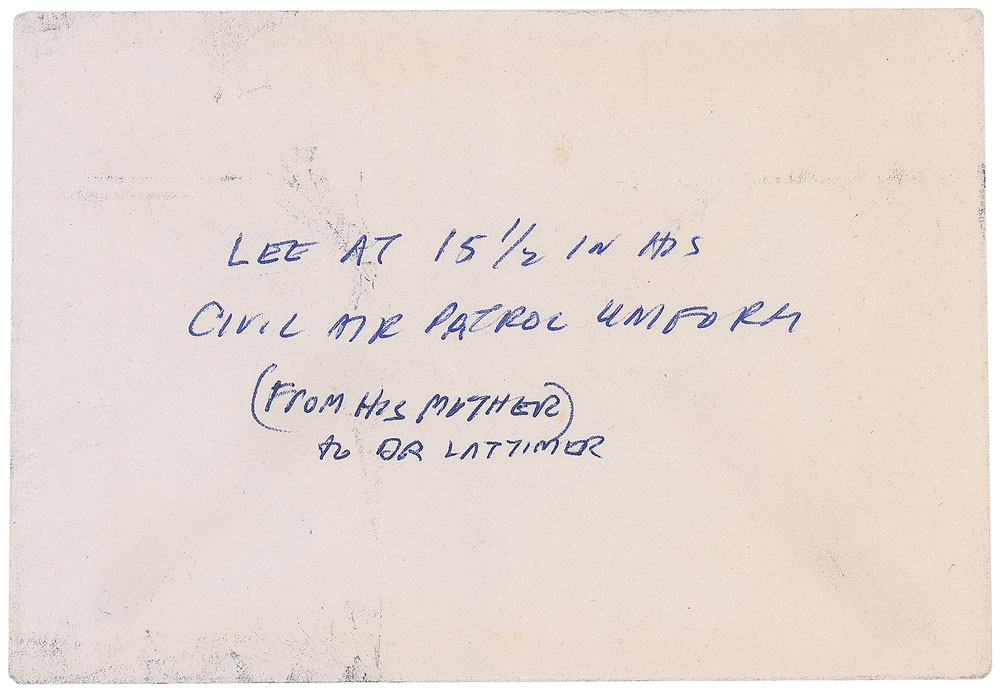 LEE AT 15 1/2 IN HIS
CIVIL AIR PATROL UNIFORM
(FROM HIS MOTHER)
to DR LATTIMER